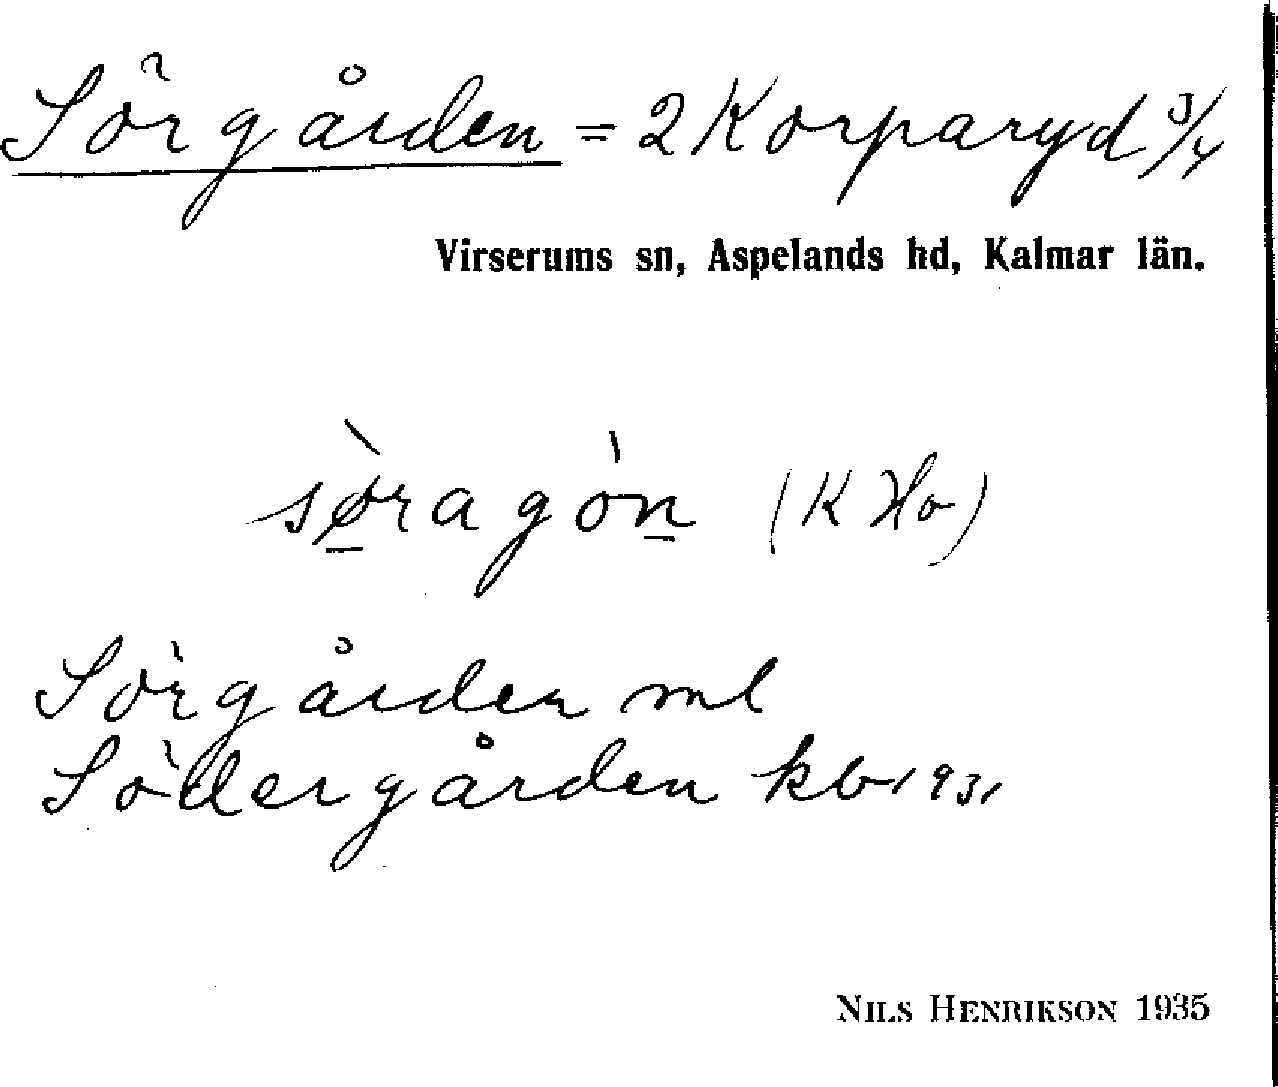 Sörgården = 2 Korparyd 3/4
Virserums sn, Aspelands hd, Kalmar län.
sø̀ragòn (K Ho)
Sörgården ml
Södergården kb 1931
NILS HENRIKSON 1935